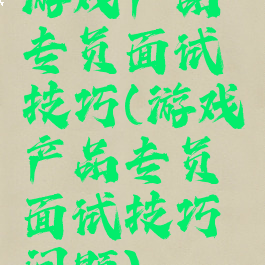 游戏产品
专员面试
技巧(游戏
产品专员
面试技巧
问题)